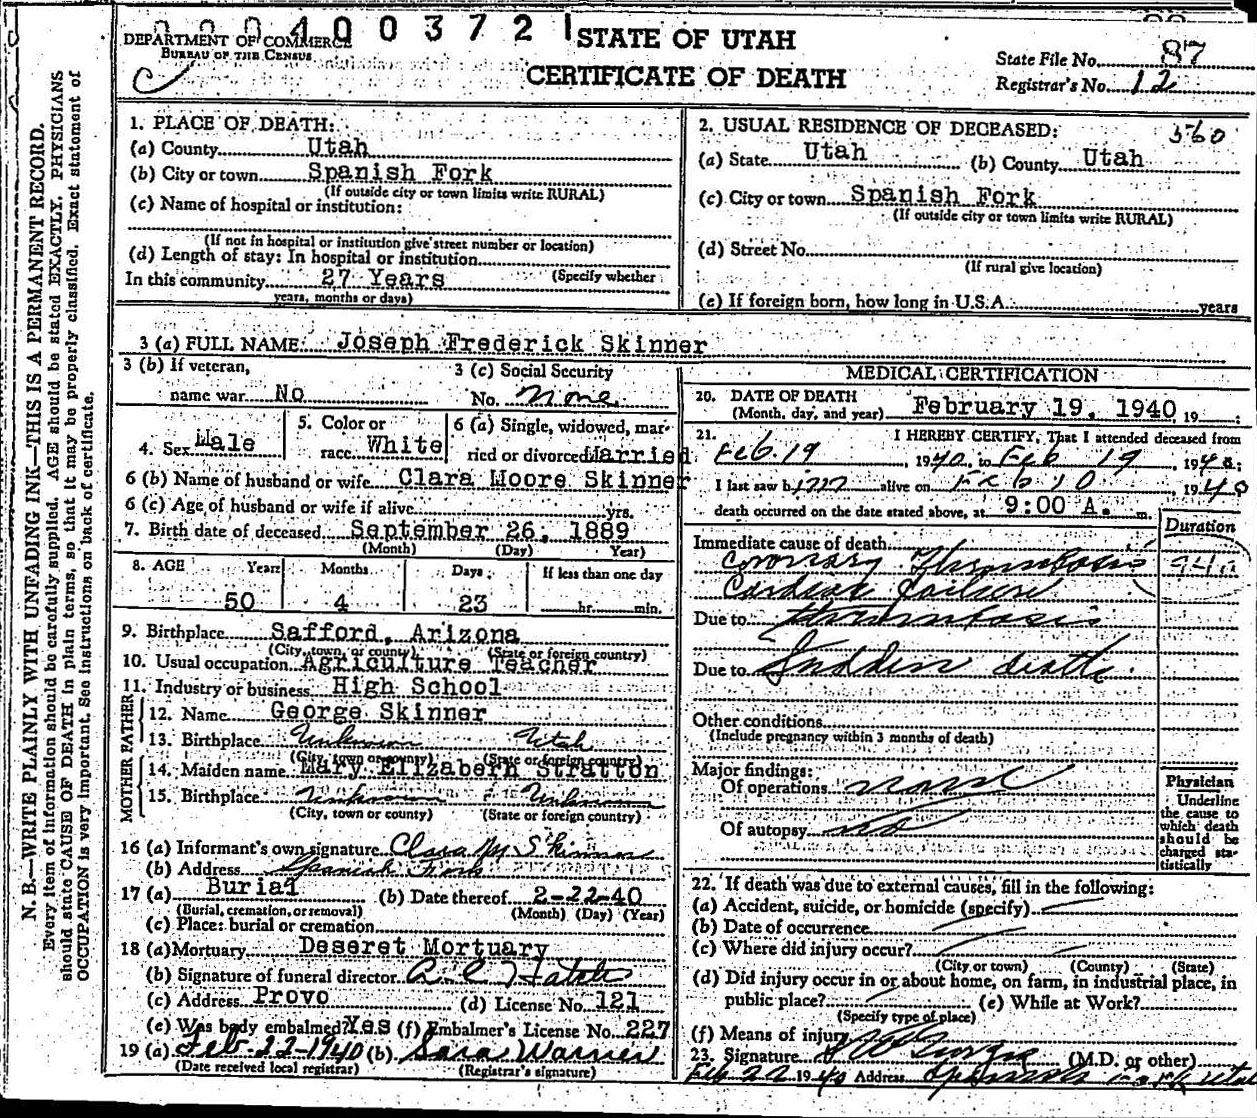 0 0 0 4 0 0 3 7 2 1
DEPARTMENT OF COMMERCE
BUREAU OF THE CENSUS
STATE OF UTAH
CERTIFICATE OF DEATH
State File No. 87
Registrar's No. 12
N. B.—WRITE PLAINLY WITH UNFADING INK—THIS IS A PERMANENT RECORD.
Every item of information should be carefully supplied. AGE should be stated EXACTLY. PHYSICIANS
should state CAUSE OF DEATH in plain terms, so that it may be properly classified. Exact statement of
OCCUPATION is very important. See instructions on back of certificate.
1. PLACE OF DEATH:
(a) County Utah
(b) City or town Spanish Fork
(If outside city or town limits write RURAL)
(c) Name of hospital or institution:
(If not in hospital or institution give street number or location)
(d) Length of stay: In hospital or institution
(Specify whether
In this community 27 Years
years, months or days)
2. USUAL RESIDENCE OF DECEASED: 560
(a) State Utah (b) County Utah
(c) City or town Spanish Fork
(If outside city or town limits write RURAL)
(d) Street No.
(If rural give location)
(e) If foreign born, how long in U.S.A. years
3 (a) FULL NAME: Joseph Frederick Skinner
3 (b) If veteran,
name war No
3 (c) Social Security
No. None
4. Sex Male
5. Color or
race White
6 (a) Single, widowed, mar-
ried or divorced Married
6 (b) Name of husband or wife Clara Moore Skinner
6 (c) Age of husband or wife if alive yrs.
7. Birth date of deceased September 26, 1889
(Month) (Day) Year)
8. AGE Years Months Days If less than one day
50 4 23 hr. min.
9. Birthplace Safford, Arizona
(City, town, or county) (State or foreign country)
10. Usual occupation Agriculture Teacher
11. Industry or business High School
FATHER
12. Name George Skinner
13. Birthplace Unknown Utah
(City, town or county) (State or foreign country)
MOTHER
14. Maiden name Mary Elizabern Stratton
15. Birthplace Unknown Unknown
(City, town or county) (State or foreign country)
16 (a) Informant's own signature Clara M Skinner
(b) Address Spanish Fork
17 (a) Burial (b) Date thereof 2-22-40
(Burial, cremation, or removal) (Month) (Day) (Year)
(c) Place: burial or cremation
18 (a) Mortuary Deseret Mortuary
(b) Signature of funeral director
(c) Address Provo (d) License No. 121
(e) Was body embalmed? Yes (f) Embalmer's License No. 227
19 (a) Feb-22-1940 (b) Sara Warner
(Date received local registrar) (Registrar's signature)
MEDICAL CERTIFICATION
20. DATE OF DEATH
(Month, day, and year) February 19, 1940, 19
21. I HEREBY CERTIFY, That I attended deceased from
Feb. 19, 1940, to Feb 19, 1940;
I last saw him alive on Feb 10, 1940
death occurred on the date stated above, at 9:00 A. m.
Duration
Immediate cause of death
Coronary Thrombosis 94a
Cardiac failure
Due to thrombosis
Due to Sudden death
Other conditions
(Include pregnancy within 3 months of death)
Major findings:
Of operations none
Of autopsy no
Physician
Underline
the cause to
which death
should be
charged sta-
tistically
22. If death was due to external causes, fill in the following:
(a) Accident, suicide, or homicide (specify)
(b) Date of occurrence
(c) Where did injury occur?
(City or town) (County) (State)
(d) Did injury occur in or about home, on farm, in industrial place, in
public place? (e) While at Work?
(Specify type of place)
(f) Means of injury
23. Signature (M.D. or other)
Feb 22 1940 Address Spanish Fork Utah